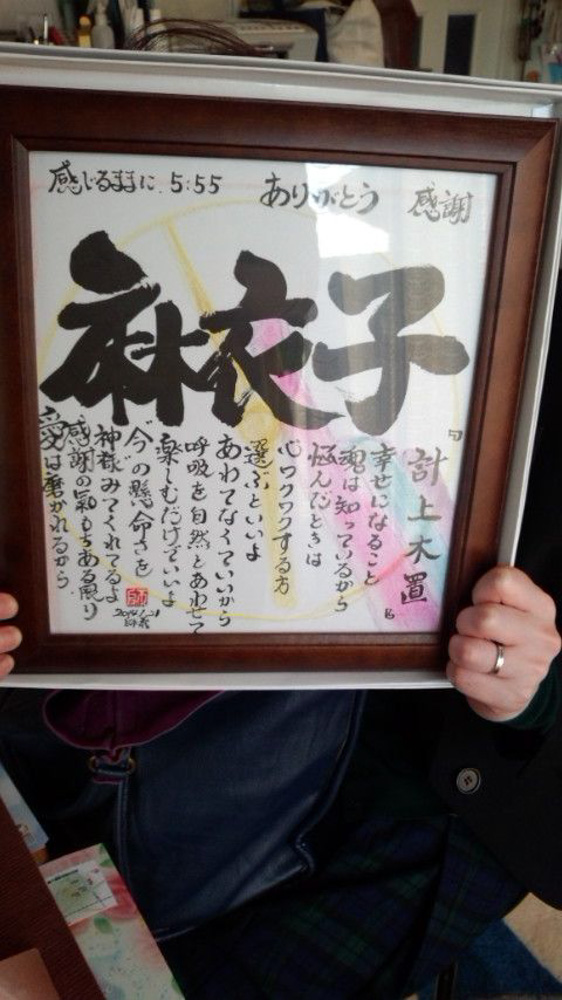 感じるままに 5:55
ありがとう
感謝
麻衣子
『計上木置』
幸せになること
魂は知っているから
悩んだときは
心ワクワクする方
選ぶといいよ
あわてなくていいから
呼吸を自然とあわせて
楽しむだけでいいよ
今の懸命さを
神様みてくれてるよ
感謝の氣もちある限り
愛は磨かれるから